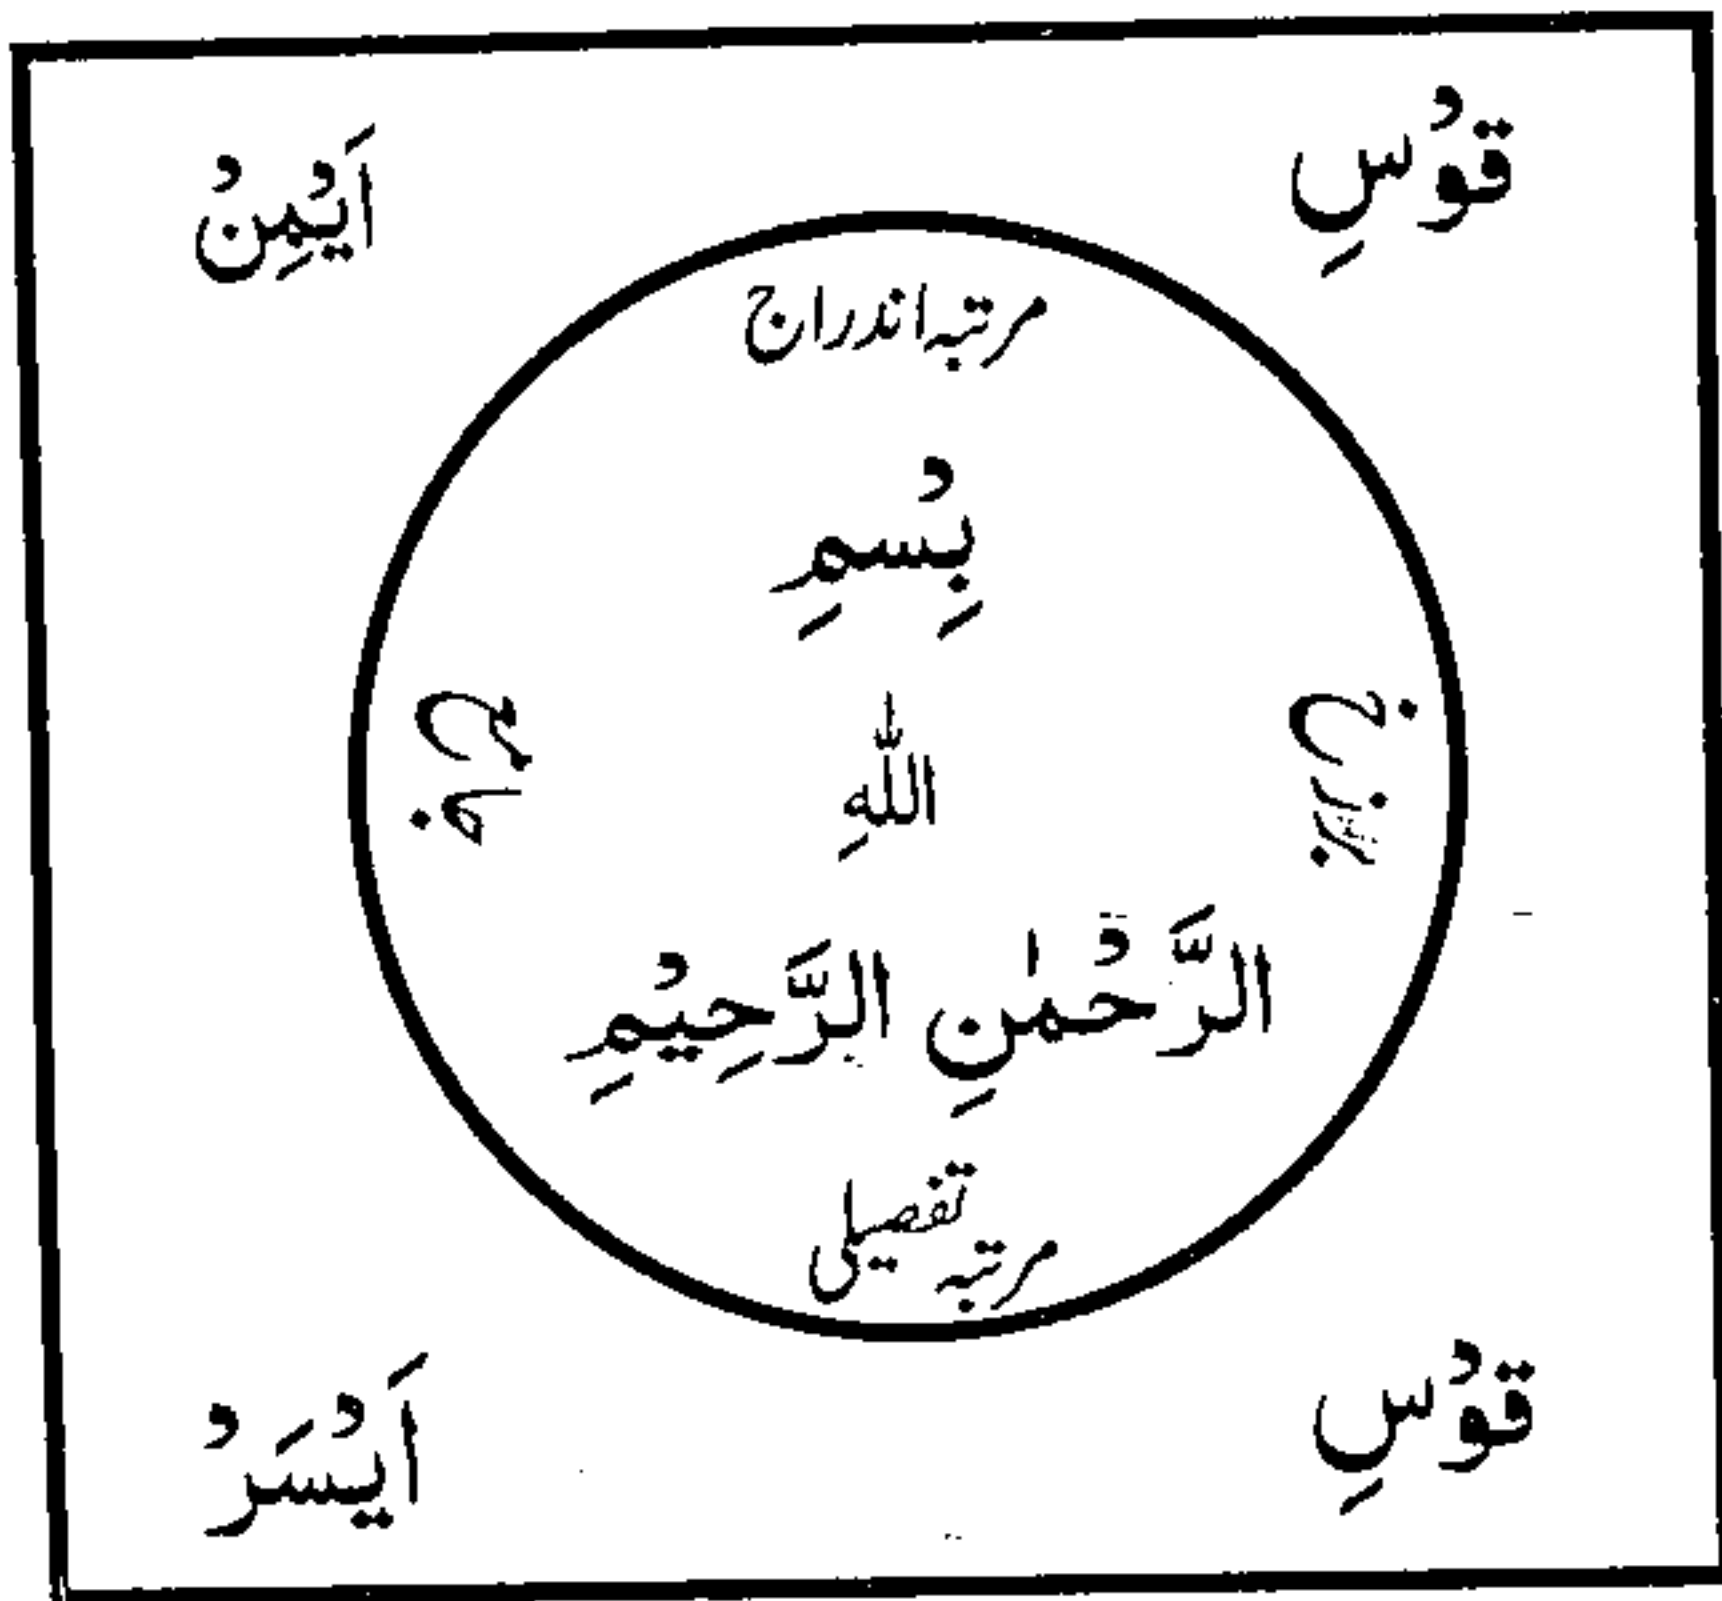 قَوْسِ اَيْمِنْ
مرتبہ اندراج
بِسْمِ
اللّٰهِ
برزخ
الرَّحْمٰنِ الرَّحِيْمِ
مرتبہ تفصیلی
قَوْسِ اَيْسَرْ